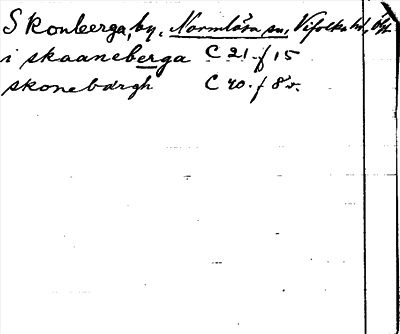 Skonberga, by, Normlösa sn, Vifolka hd, Ög.
i skaaneberga C 21. f 15
skonebărgh C 40. f 8 v.